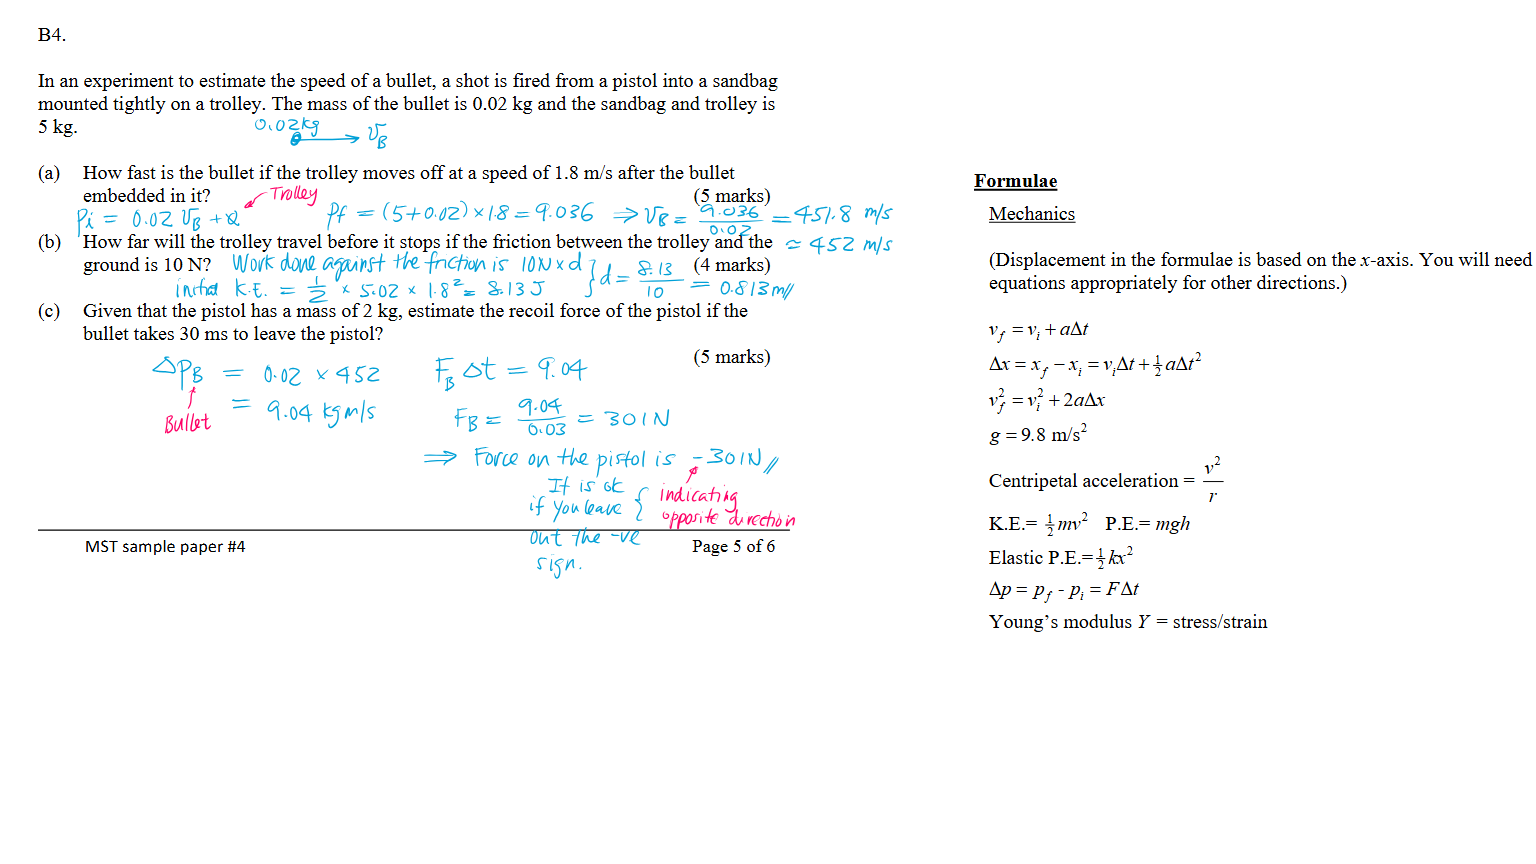 B4.
In an experiment to estimate the speed of a bullet, a shot is fired from a pistol into a sandbag
mounted tightly on a trolley. The mass of the bullet is 0.02 kg and the sandbag and trolley is
5 kg.
0.02kg → v_B
(a) How fast is the bullet if the trolley moves off at a speed of 1.8 m/s after the bullet
embedded in it? (5 marks)
Trolley
Pi = 0.02 v_B + 0 Pf = (5+0.02)×1.8 = 9.036 ⇒ v_B = 9.036/0.02 = 451.8 m/s
≃ 452 m/s
(b) How far will the trolley travel before it stops if the friction between the trolley and the
ground is 10 N? (4 marks)
Work done against the friction is 10N×d } d = 8.13/10 = 0.813 m//
initial K.E. = 1/2 × 5.02 × 1.8² = 8.13 J
(c) Given that the pistol has a mass of 2 kg, estimate the recoil force of the pistol if the
bullet takes 30 ms to leave the pistol?
(5 marks)
ΔP_B = 0.02 × 452
= 9.04 kg m/s
Bullet
F_B Δt = 9.04
F_B = 9.04/0.03 = 301N
⇒ Force on the pistol is -301N//
It is ok
if you leave {
out the -ve
sign.
indicating
opposite direction
MST sample paper #4 Page 5 of 6
Formulae
Mechanics
(Displacement in the formulae is based on the x-axis. You will need
equations appropriately for other directions.)
v_f = v_i + aΔt
Δx = x_f − x_i = v_iΔt + ½aΔt²
v_f² = v_i² + 2aΔx
g = 9.8 m/s²
Centripetal acceleration = v²/r
K.E.= ½mv² P.E.= mgh
Elastic P.E.=½kx²
Δp = p_f - p_i = FΔt
Young’s modulus Y = stress/strain